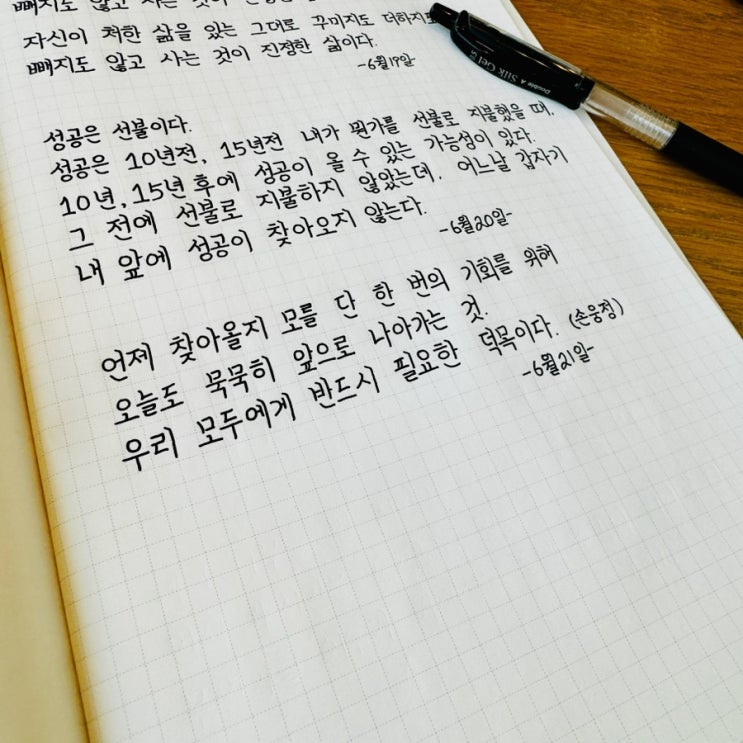 빼지도 않고 사는 것이 진정한
자신이 처한 삶을 있는 그대로 꾸미지도 더하지도
빼지도 않고 사는 것이 진정한 삶이다.
-6월19일-
성공은 선불이다.
성공은 10년전, 15년전 내가 뭔가를 선불로 지불했을 때,
10년, 15년 후에 성공이 올 수 있는 가능성이 있다.
그 전에 선불로 지불하지 않았는데, 어느날 갑자기
내 앞에 성공이 찾아오지 않는다.
-6월20일-
언제 찾아올지 모를 단 한 번의 기회를 위해
오늘도 묵묵히 앞으로 나아가는 것.
우리 모두에게 반드시 필요한 덕목이다. (손웅정)
-6월21일-
Double A Silk Gel